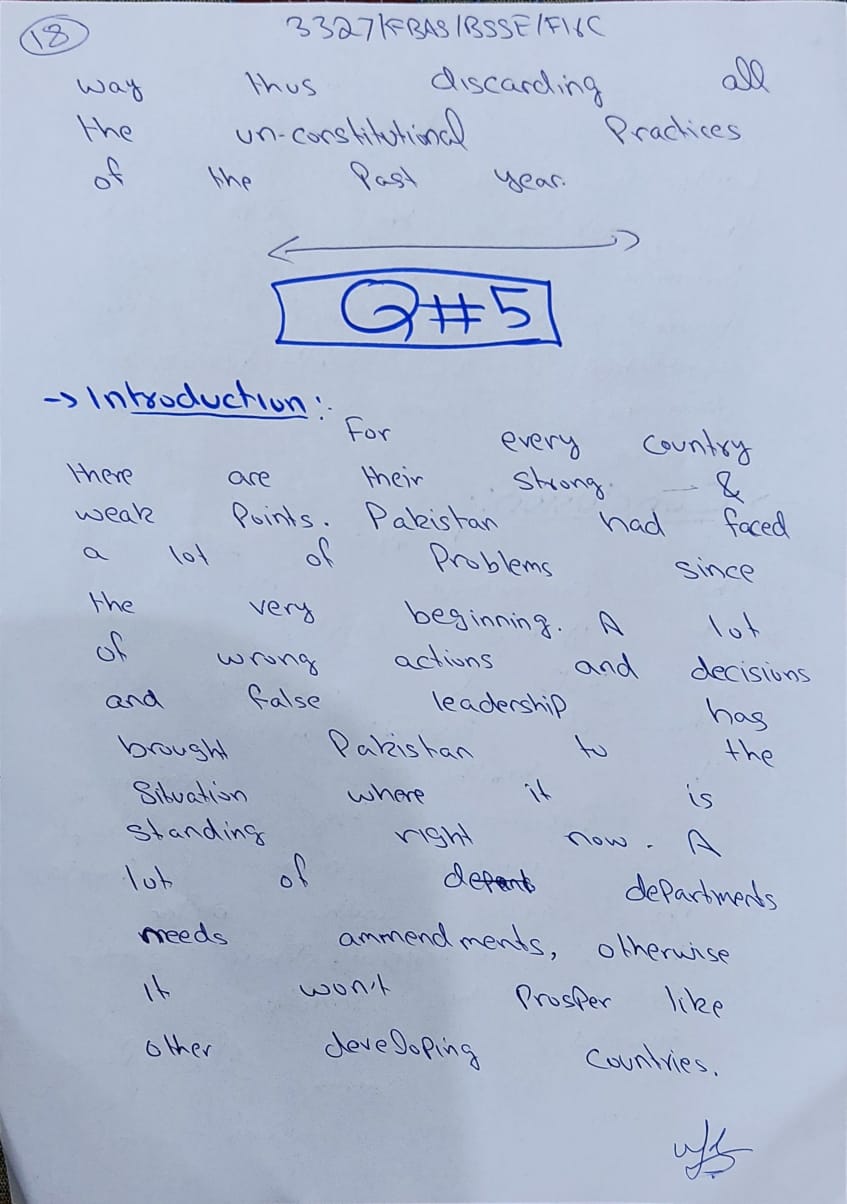 18
3327/FBAS/BSSE/F18C
way thus discarding all
the un-constitutional Practices
of the Past year.
Q#5
-> Introduction:
For every country
there are their strong &
weak Points. Pakistan had faced
a lot of Problems since
the very beginning. A lot
of wrong actions and decisions
and false leadership has
brought Pakistan to the
Situation where it is
standing right now. A
lot of departments
needs ammendments, otherwise
it won't Prosper like
other developing countries.